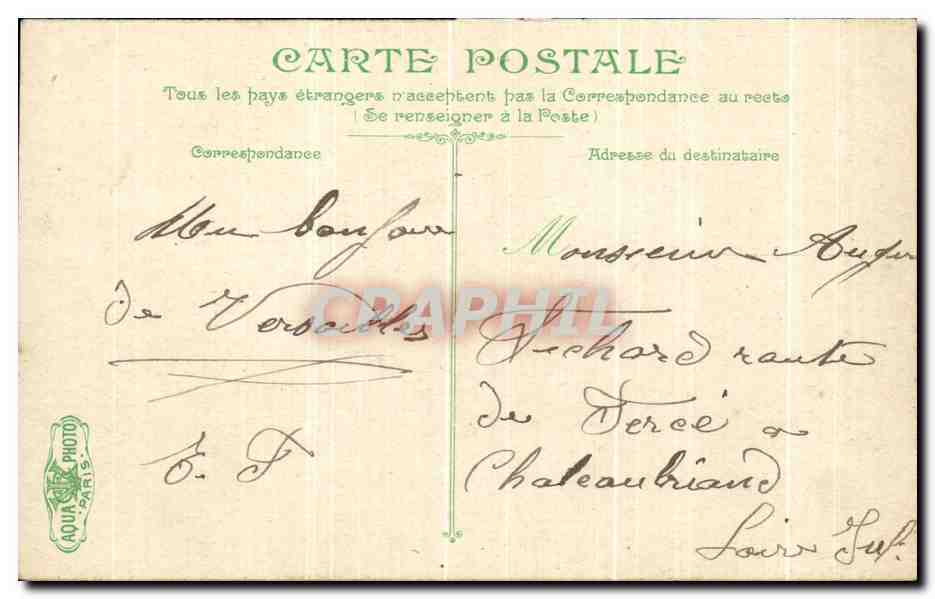 CARTE POSTALE
Tous les pays étrangers n'acceptent pas la Correspondance au recto
(Se renseigner à la Poste)
Correspondance
Adresse du destinataire
bonjour
de Versailles
E. F
Monsieur Auger
Fechard route
de Fercé a
Chateaubriand
Loire Inf.
AQUA PHOTO
PARIS
CRAPHIL